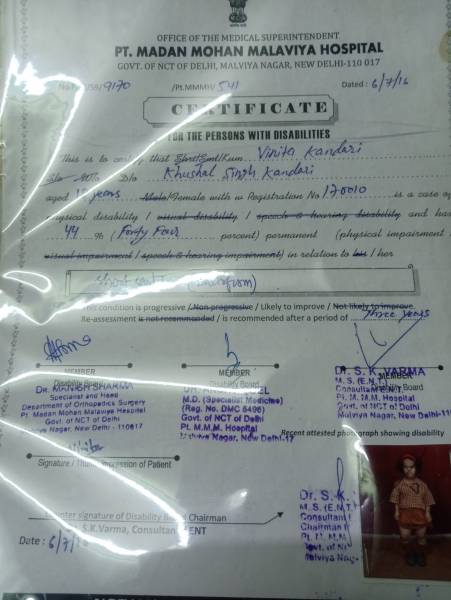 OFFICE OF THE MEDICAL SUPERINTENDENT
PT. MADAN MOHAN MALAVIYA HOSPITAL
GOVT. OF NCT OF DELHI, MALVIYA NAGAR, NEW DELHI-110 017
9170 /Pt.MMMH/ 541 Dated : 6/7/16
CERTIFICATE
FOR THE PERSONS WITH DISABILITIES
This is to certify that Shri/Smt/Kum Vinita Kandari
D/o Khushal Singh Kandari
aged years Male/Female with Registration No 170010 is a case of
physical disability / visual disability / speech & hearing disability and has
44 % (Forty Four percent) permanent (physical impairment
visual impairment / speech & hearing impairment) in relation to his / her
This condition is progressive / Non progressive / Likely to improve / Not likely to improve.
Re-assessment is not recommended / is recommended after a period of Three years
MEMBER
Disability Board
DR. MANISH SHARMA
Specialist and Head
Department of Orthopedics Surgery
Pt. Madan Mohan Malaviya Hospital
Govt. of NCT of Delhi
Nagar, New Delhi - 110017
MEMBER
Disability Board
M.D. (Specialist Medicine)
(Reg. No. DMC 5496)
Govt of NCT of Delhi
Pt. M.M.M. Hospital
Malviya Nagar, New Delhi-17
Dr. S. K. VARMA
MEMBER
M. S. (E.N.T.)
Disability Board
Consultant E.N.T.
Pt. M. M.M. Hospital
Govt. of NCT of Delhi
Malviya Nagar, New Delhi-110
Recent attested photograph showing disability
Signature / Thumb Impression of Patient
Counter signature of Disability Board Chairman
S.K.Varma, Consultant ENT
Date : 6/7/16
Dr. S. K.
M. S. (E.N.T.
Consultant
Chairman
Pt. M. M.
Govt. of N
Malviya Nag